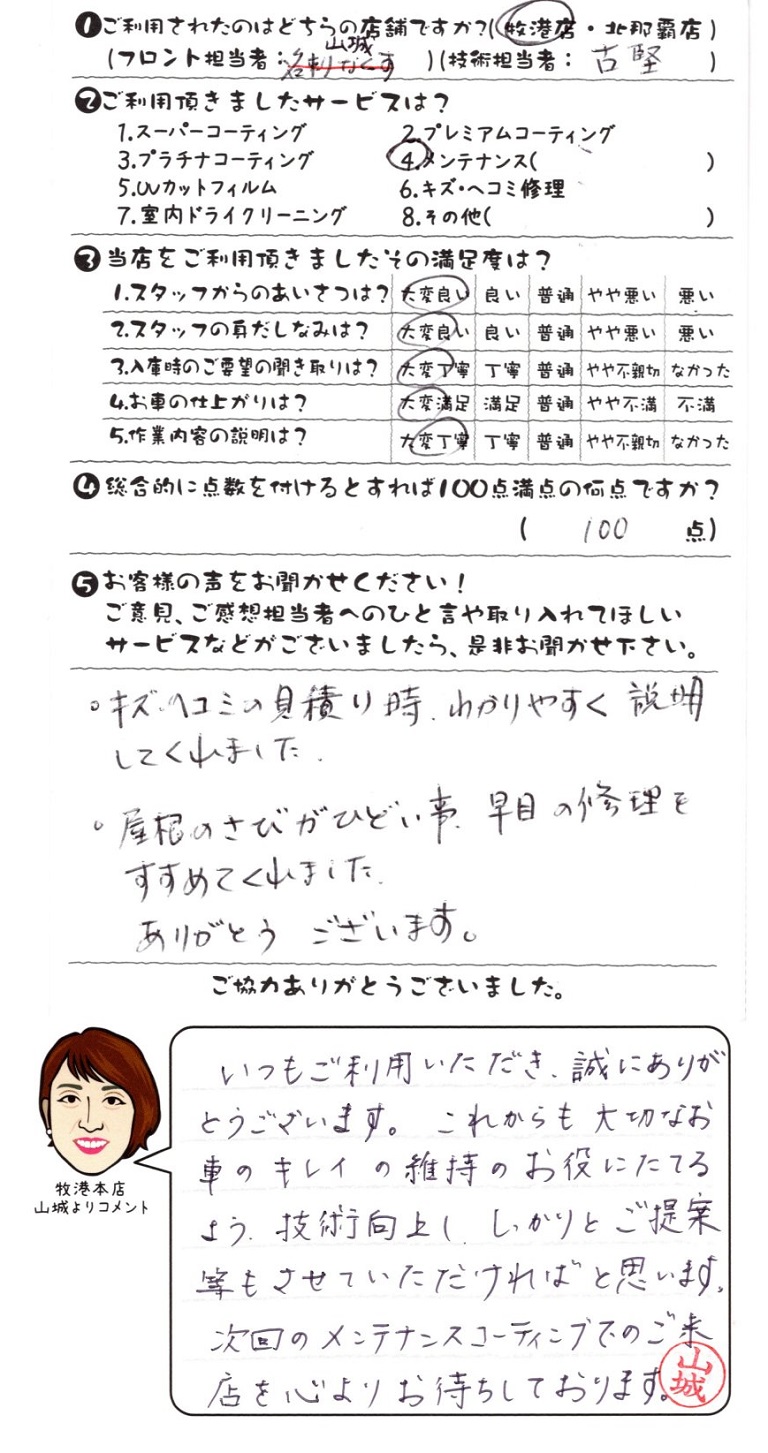 ❶ご利用されたのはどちらの店舗ですか?(牧港店・北那覇店)
山城
(フロント担当者:名刺なくす)(技術担当者:古堅)
❷ご利用頂きましたサービスは?
1.スーパーコーティング 2.プレミアムコーティング
3.プラチナコーティング 4.メンテナンス( )
5.UVカットフィルム 6.キズ・ヘコミ修理
7.室内ドライクリーニング 8.その他( )
❸当店をご利用頂きましたその満足度は?
1.スタッフからのあいさつは? 大変良い 良い 普通 やや悪い 悪い
2.スタッフの身だしなみは? 大変良い 良い 普通 やや悪い 悪い
3.入庫時のご要望の聞き取りは? 大変丁寧 丁寧 普通 やや不親切 なかった
4.お車の仕上がりは? 大変満足 満足 普通 やや不満 不満
5.作業内容の説明は? 大変丁寧 丁寧 普通 やや不親切 なかった
❹総合的に点数を付けるとすれば100点満点の何点ですか?
( 100 点)
❺お客様の声をお聞かせください!
ご意見、ご感想担当者へのひと言や取り入れてほしい
サービスなどがございましたら、是非お聞かせ下さい。
○キズ、ヘコミの見積り時、わかりやすく説明
してくれました。
○屋根のさびがひどい事、早目の修理を
すすめてくれました。
ありがとう ございます。
ご協力ありがとうございました。
いつもご利用いただき、誠にありが
とうございます。これからも大切なお
車のキレイの維持のお役にたてる
よう、技術向上し、しっかりとご提案
等もさせていただければと思います。
次回のメンテナンスコーティングでのご来
店を心よりお待ちしております。
山城
牧港本店
山城よりコメント